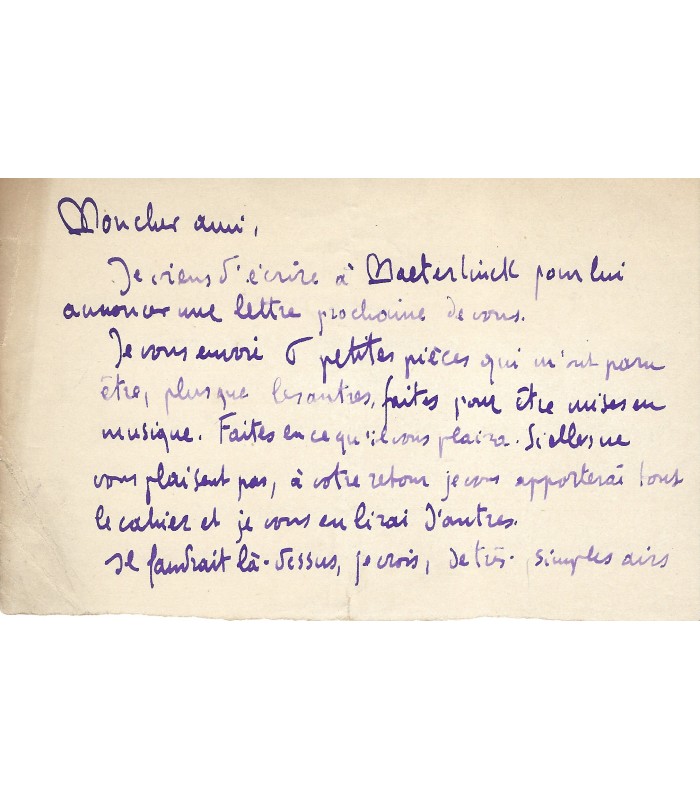 Mon cher ami,
Je viens d'écrire à Maeterlinck pour lui
annoncer une lettre prochaine de vous.
Je vous envoie 6 petites pièces qui m'ont paru
être, plus que les autres, faites pour être mises en
musique. Faites en ce qu'il vous plaira. Si elles ne
vous plaisent pas, à votre retour je vous apporterai tout
le cahier et je vous en lirai d'autres.
Il faudrait là-dessus, je crois, de très simples airs